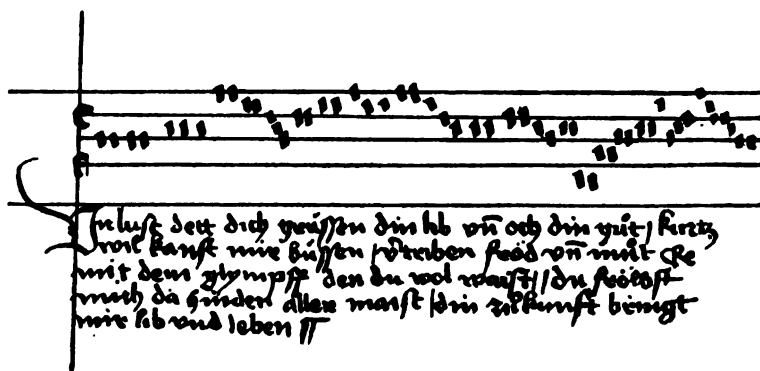 In lust dett dich grüssen din lib vn̄ och din gůt / kurtz
wil kanst mir büssen / v̓treiben fröd vn̄ můt Ke
mit dem glympff den du wol waist // du frölost
mich da hinden aller maist / din zůkunft bringt
mir lib vnd leben